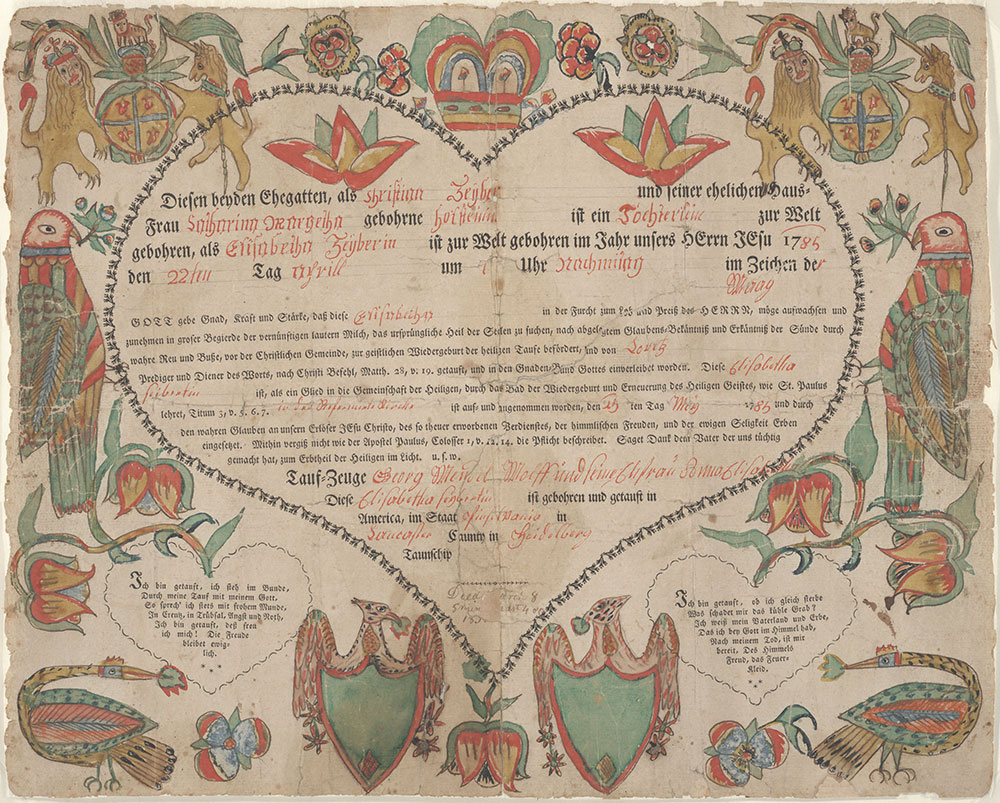 Diesen beyden Ehegatten, als Christian Zeyber und seiner ehelichen Haus-
Frau Catharina Margetha gebohrne ist ein Tochterlein zur Welt
gebohren, als Elisabetha Zeyberin ist zur Welt gebohren im Jahr unsers HErrn JEsu 1785
den 22ten Tag Aprill um Uhr Nachmitag im Zeichen der
Waag
GOTT gebe Gnad, Kraft und Stärke, daß diese Elisabetha in der Furcht zum Lob und Preiß des HERRN, möge aufwachsen und
zunehmen in groser Begierde der vernünftigen lautern Milch, das ursprüngliche Heil der Seelen zu suchen, nach abgelegtem Glaubens-Bekäntniß und Erkäntniß der Sünde durch
wahre Reu und Buße, vor der Christlichen Gemeinde, zur geistlichen Wiedergeburt der heiligen Taufe befördert, und von
Prediger und Diener des Worts, nach Christi Befehl, Matth. 28, v. 19. getauft, und in den Gnaden-Bund Gottes einverleibet worden. Diese Elisabetha
seibertin ist, als ein Glied in die Gemeinschaft der Heiligen, durch das Bad der Wiedergeburt und Erneuerung des Heiligen Geistes, wie St. Paulus
lehret, Titum 3, v. 5. 6. 7. in der Reformirte Kirche ist auf- und angenommen worden, den ten Tag May 1785 und durch
den wahren Glauben an unsern Erlöser JEsu Christo, des so theuer erworbenen Verdienstes, der himmlischen Freuden, und der ewigen Seligkeit Erben
eingesetzt. Mithin vergiß nicht wie der Apostel Paulus, Colosser 1, v. 12, 14. die Pflicht beschreibet. Saget Dank dem Vater der uns tüchtig
gemacht hat, zum Erbtheil der Heiligen im Licht. u. s. w.
Tauf-Zeuge Georg Wendel Wolff und seine Ehfrau Anna Elisabeth
Diese Elisabetha seibertin ist gebohren und getauft in
America, im Staat in
Lencaster Caunty in Heidelberg
Taunschip
Died
Ich bin getauft, ich steh im Bunde,
Durch meine Tauf mit meinem Gott,
So sprech' ich stets mit frohem Munde,
In Creutz, in Trübsal, Angst und Noth,
Ich bin getauft, deß freu
ich mich! Die Freude
bleibet ewig-
lich.
Ich bin getauft, ob ich gleich sterbe
Was schadet mir das kühle Grab?
Ich weiß mein Vaterland und Erbe,
Das ich bey Gott im Himmel hab,
Nach meinem Tod, ist mir
bereit, Des Himmels
Freud, das Feuer-
Kleid.